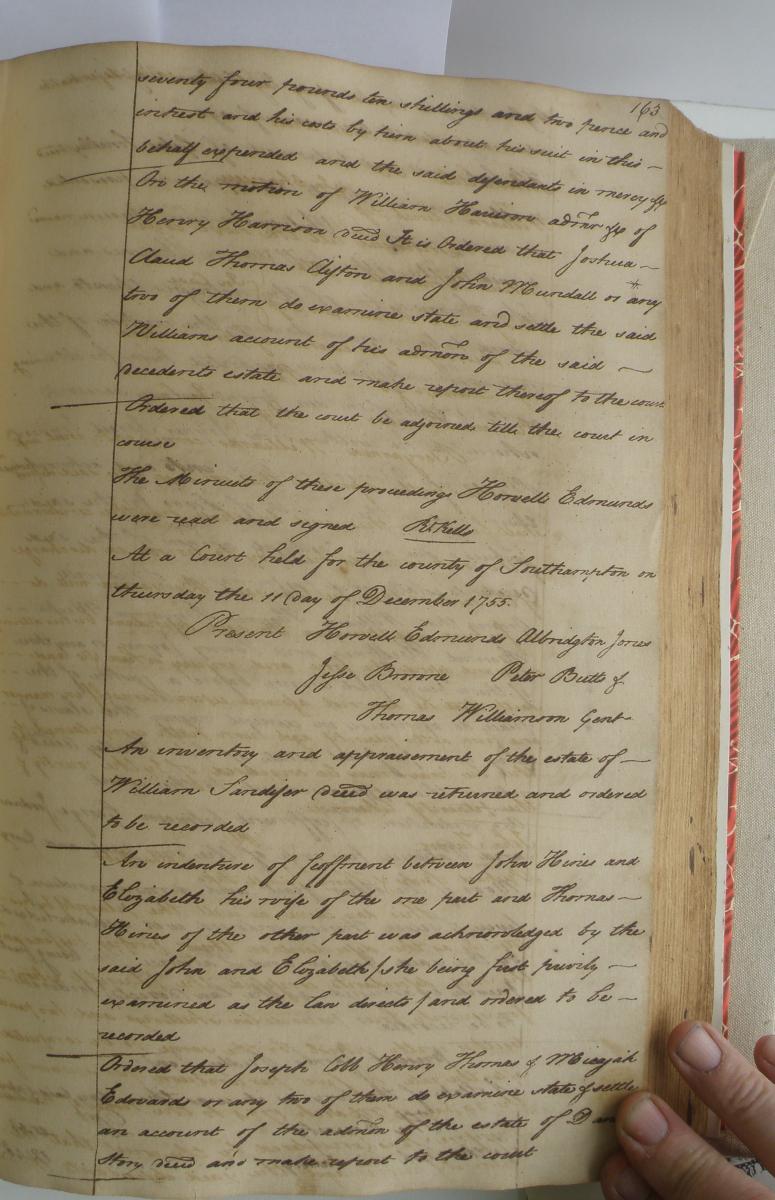 163
seventy four pounds ten shillings and two pence and
interest and his costs by him about his suit in this —
behalf expended and the said defendants in mercy &c
On the motion of William Harrison admr &c of
Henry Harrison deced It is Ordered that Joshua —
Claud Thomas Clifton and John Mundall or any
two of them do examine state and settle the said
Williams account of his admon of the said —
decedents estate and make report thereof to the court
Ordered that the court be adjorned till the court in
course
The Minuets of these proceedings Howell Edmunds
were read and signed Rd Kello
At a Court held for the county of Southampton on
thursday the 11 Day of December 1755.
Present Howell Edmunds Albridgton Jones
Jesse Browne Peter Butts &
Thomas Williamson Gent
An inventory and appraisement of the estate of —
William Sandifer deced was returned and ordered
to be recorded
An indenture of feoffment between John Hines and
Elizabeth his wife of the one part and Thomas —
Hines of the other part was acknowledged by the
said John and Elizabeth /she being first privily —
examined as the law directs/ and ordered to be —
recorded
Ordered that Joseph Cobb Henry Thomas & Micajah
Edwards or any two of them do examine state & settle
an account of the admon of the estate of
Story deced and make report to the court